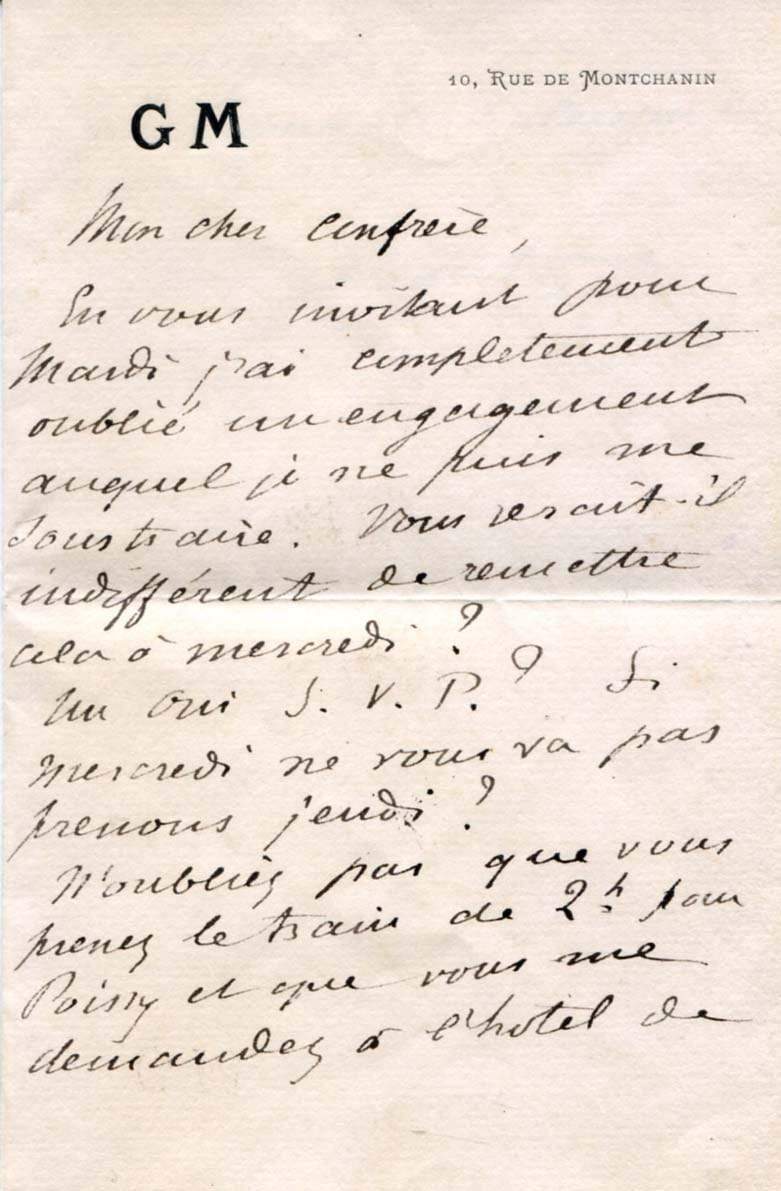 10, RUE DE MONTCHANIN
GM
Mon cher confrère,
En vous invitant pour
Mardi j'ai completement
oublié un engagement
auquel je ne puis me
soustraire. Vous serait-il
indifférent de remettre
cela à mercredi ?
Un oui S. V. P. ? Si
mercredi ne vous va pas
prenons jeudi ?
N'oubliez pas que vous
prenez le train de 2h pour
Poissy et que vous me
demandez à l'hotel de